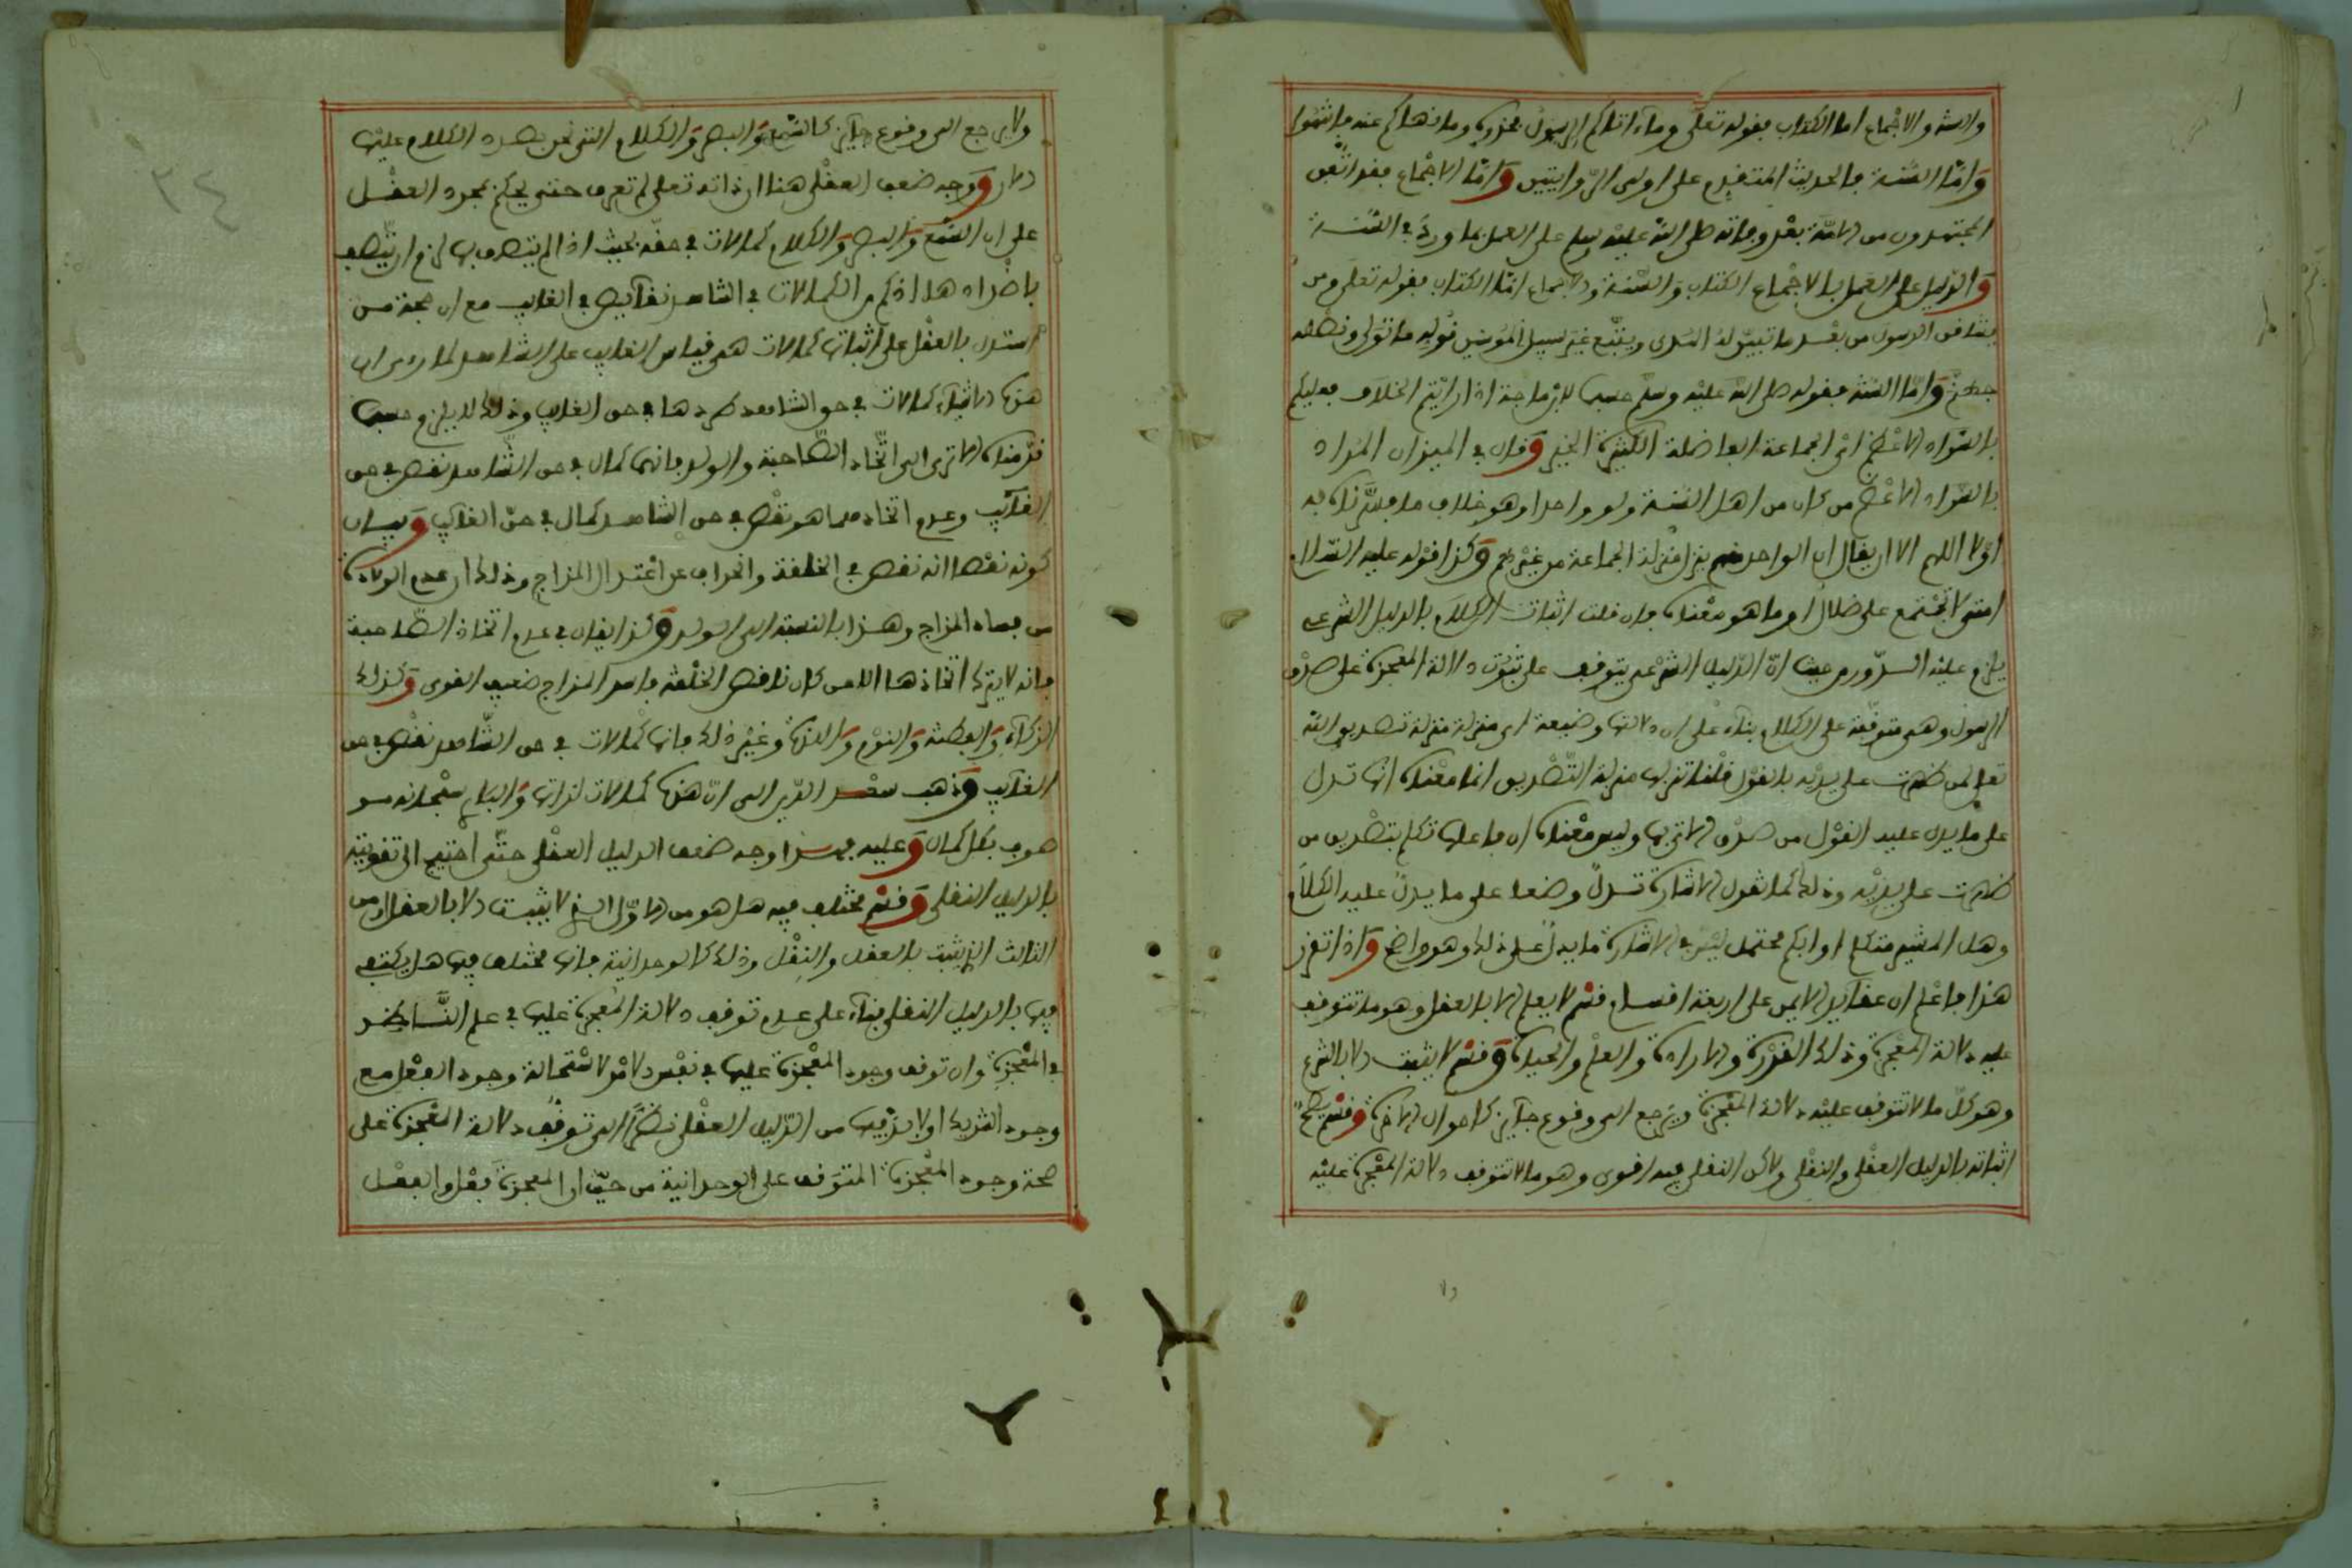 والسنة والاجماع اما الكتاب فقوله تعلى وما ءاتاكم الرسول فخذوه وما نهاكم عنه فانتهوا
وَامّا السُّنة فالحديث المتقدم على اولى الرّوايتين وَامّا الاجماع فقد اتفق
المجتهدون من الامّة بعد وفاته صلى الله عليه وسلم على العمل بما وردَ في السُّنة
وَالدليل على العمل بالاجماع الكتاب وَالسُّنة والاجماع امّا الكتاب فقوله تعلى ومن
يشاقق الرسول من بعد ما تبيّن لهُ الهُدى ويتّبع غير سبيل المُومنين نُولّه ما تولّى ونصله
جهنم وَامّا السُّنة فقوله صلى الله عليه وسلم حسبما لابن ماجة اذا رايتم الخلاَف فعليكم
بالسّواد الاعْظم ائ الجماعة الفاضلة الكثيرة الخير وَقال في الميزان المُراد
بالسّواد الاعْظم من كان من اهل السُّنة ولو واحدا وهو خلاف ما فسّرناه به
اوّلا اللهم الا ان يقال ان الواحد منهم ينزل منزلة الجماعة من غيْرهم وَكذا قوْله عليه السّلام
امتى لا تجْتمع على ضلال او ما هو معْناه فان قلت اثبات الكلاَم بالدليل الشرعى
يلزم عليْه الدّور من حيث انّ الدّليل الشرْعى يتوقف على ثبُوت دلالة المعجزة على صدْق
الرسول وهى متوقّفة على الكلام بناء على ان دلالتها وضعية اى منزلة منزلة تصْديق الله
تعلى لمن ظهرت على يديْه بالقوْل قلنا تنزيلها منزلة التّصْديق انما معْناه انّها تدل
على ما يدل عليه القوْل من صدْق الاتى بها وليس معْناه ان فاعلها تكلم بتصْديق من
ظهرت على يديْه وذلك كما نقول الاشارة تدلّ وضعا على ما يدلّ عليه الكلاَم
وهل المشير متكلم او ابكم محتمل ليْس في الاشارة ما يدلّ على ذلك وهو واضح وَاذا تقرر
هذا فاعْلم ان عقائد الايمن على اربعة اقسام قسْم لا يعلم الا بالعقل وهو ما تتوقف
عليه دلالة المعْجزة وذلك القدْرة والارادة والعلْم والحياة وَقسْم لا يثبت الا بالشرع
وهو كلّ ما لا تتوقف عليْه دلالة المعْجزة ويرْجع الى وقوع جائز كاحوال الاخرة وقسْم يصحّ
اثباته بالدليل العقْلى والنقْلى ولاكن النقلى فيه اقوى وهو ما لا تتوقف دلالة المعْجزة عليْه
ولا
٣٤
ولا يرجع الى وقوع جائز كالسّمع وَالبصر وَالكلام التى نحن بصدد الكلام عليْها
الان وَوجه ضعف العقْلى هنا ان ذاته تعلى لم تعرف حتى يحكم بمجرد العقْل
على ان السّمع وَالبصر وَالكلام كمالات في حقّه بحيث اذا لم يتصف بها لزم ان يتّصف
باضْداد هااذ كم من الكمالات في الشاهد نقائص في الغايب مع ان حجة من
استدل بالعقْل على اثبات كمالات هى قياس الغايب على الشاهد لما راى ان
هذه الاشياء كمالات في حق الشاهد طردها في حق الغايب وذلك لا يلزم حسبما
قرّرناه الا ترى الى اتّخاذ الصّاحبة والولد فانهما كمال في حق الشّاهد نقص في حق
الغايب وعدم اتخاذهما هو نقْص في حق الشاهد كمال في حقّ الغايب وَبيان
كونه نقْصا انه نقص في الخلقة وانحراف عن اعْتدال المزاج وذلك ان عدم الولادة
من فساد المزاج وهذا بالنسبة الى الولد وَكذا يقال في عدم اتخاذ الصّاحبة
فانه لا يترك اتّخاذها الا من كان ناقص الخلْقة فاسد المزاج ضعيف القوى وَكذلك
الذكاء وَالفطنة وَالنوْم وَاللذة وغيْر ذلك فانها كمالات في حق الشّاهد نقْص في حق
الغائب وَذهب سعْد الدّين الى انّ هذه كمالات لذاتها وَالبارى سبْحانه مو
صوف بكل كمال وَعليه فهذا وجه ضعف الدليل العقْلى حتّى احْتيج الى تقويته
بالدليل النقلى وَقسْم مختلف فيه هل هو من الاوّل الذى لا يثبت الا بالعقل او من
الثالث الذى يثبت بالعقل والنقْل وذلك كالوحدانية فانها مختلف فيها هل يكتفى
فيها بالدليل النقلى بناء على عدم توقف دلالة المُعجزة عليها في علم النّاظر
في المعْجزة وان توقف وجود المعْجزة عليها في نفْس الامْر لاسْتحالة وجود الفعْل مع
وجود الشريك اولا بدّ فيها من الدّليل العقْلى نظرًا الى توقّف دلالة المعْجزة على
صحة وجود المعْجزة المتوَقف على الوحدانية من حيْث ان المعجزة فعْل والفعْل